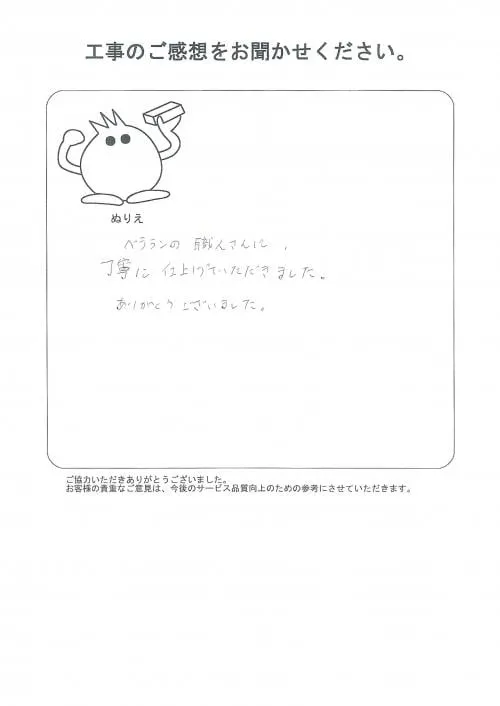 工事のご感想をお聞かせください。
ぬりえ
ベテランの 職人さんに、
丁寧に 仕上げていただきました。
ありがとうございました。
ご協力いただきありがとうございました。
お客様の貴重なご意見は、今後のサービス品質向上のための参考にさせていただきます。